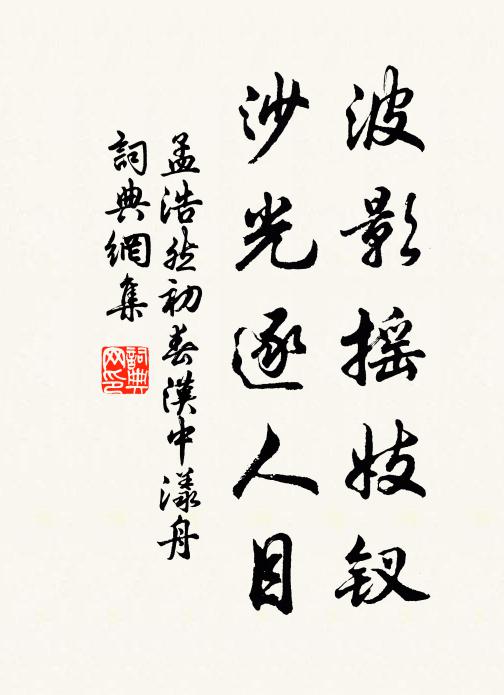 波影摇妓钗
沙光逐人目
孟浩然初春漢中漾舟
詞典網集
詞典网印